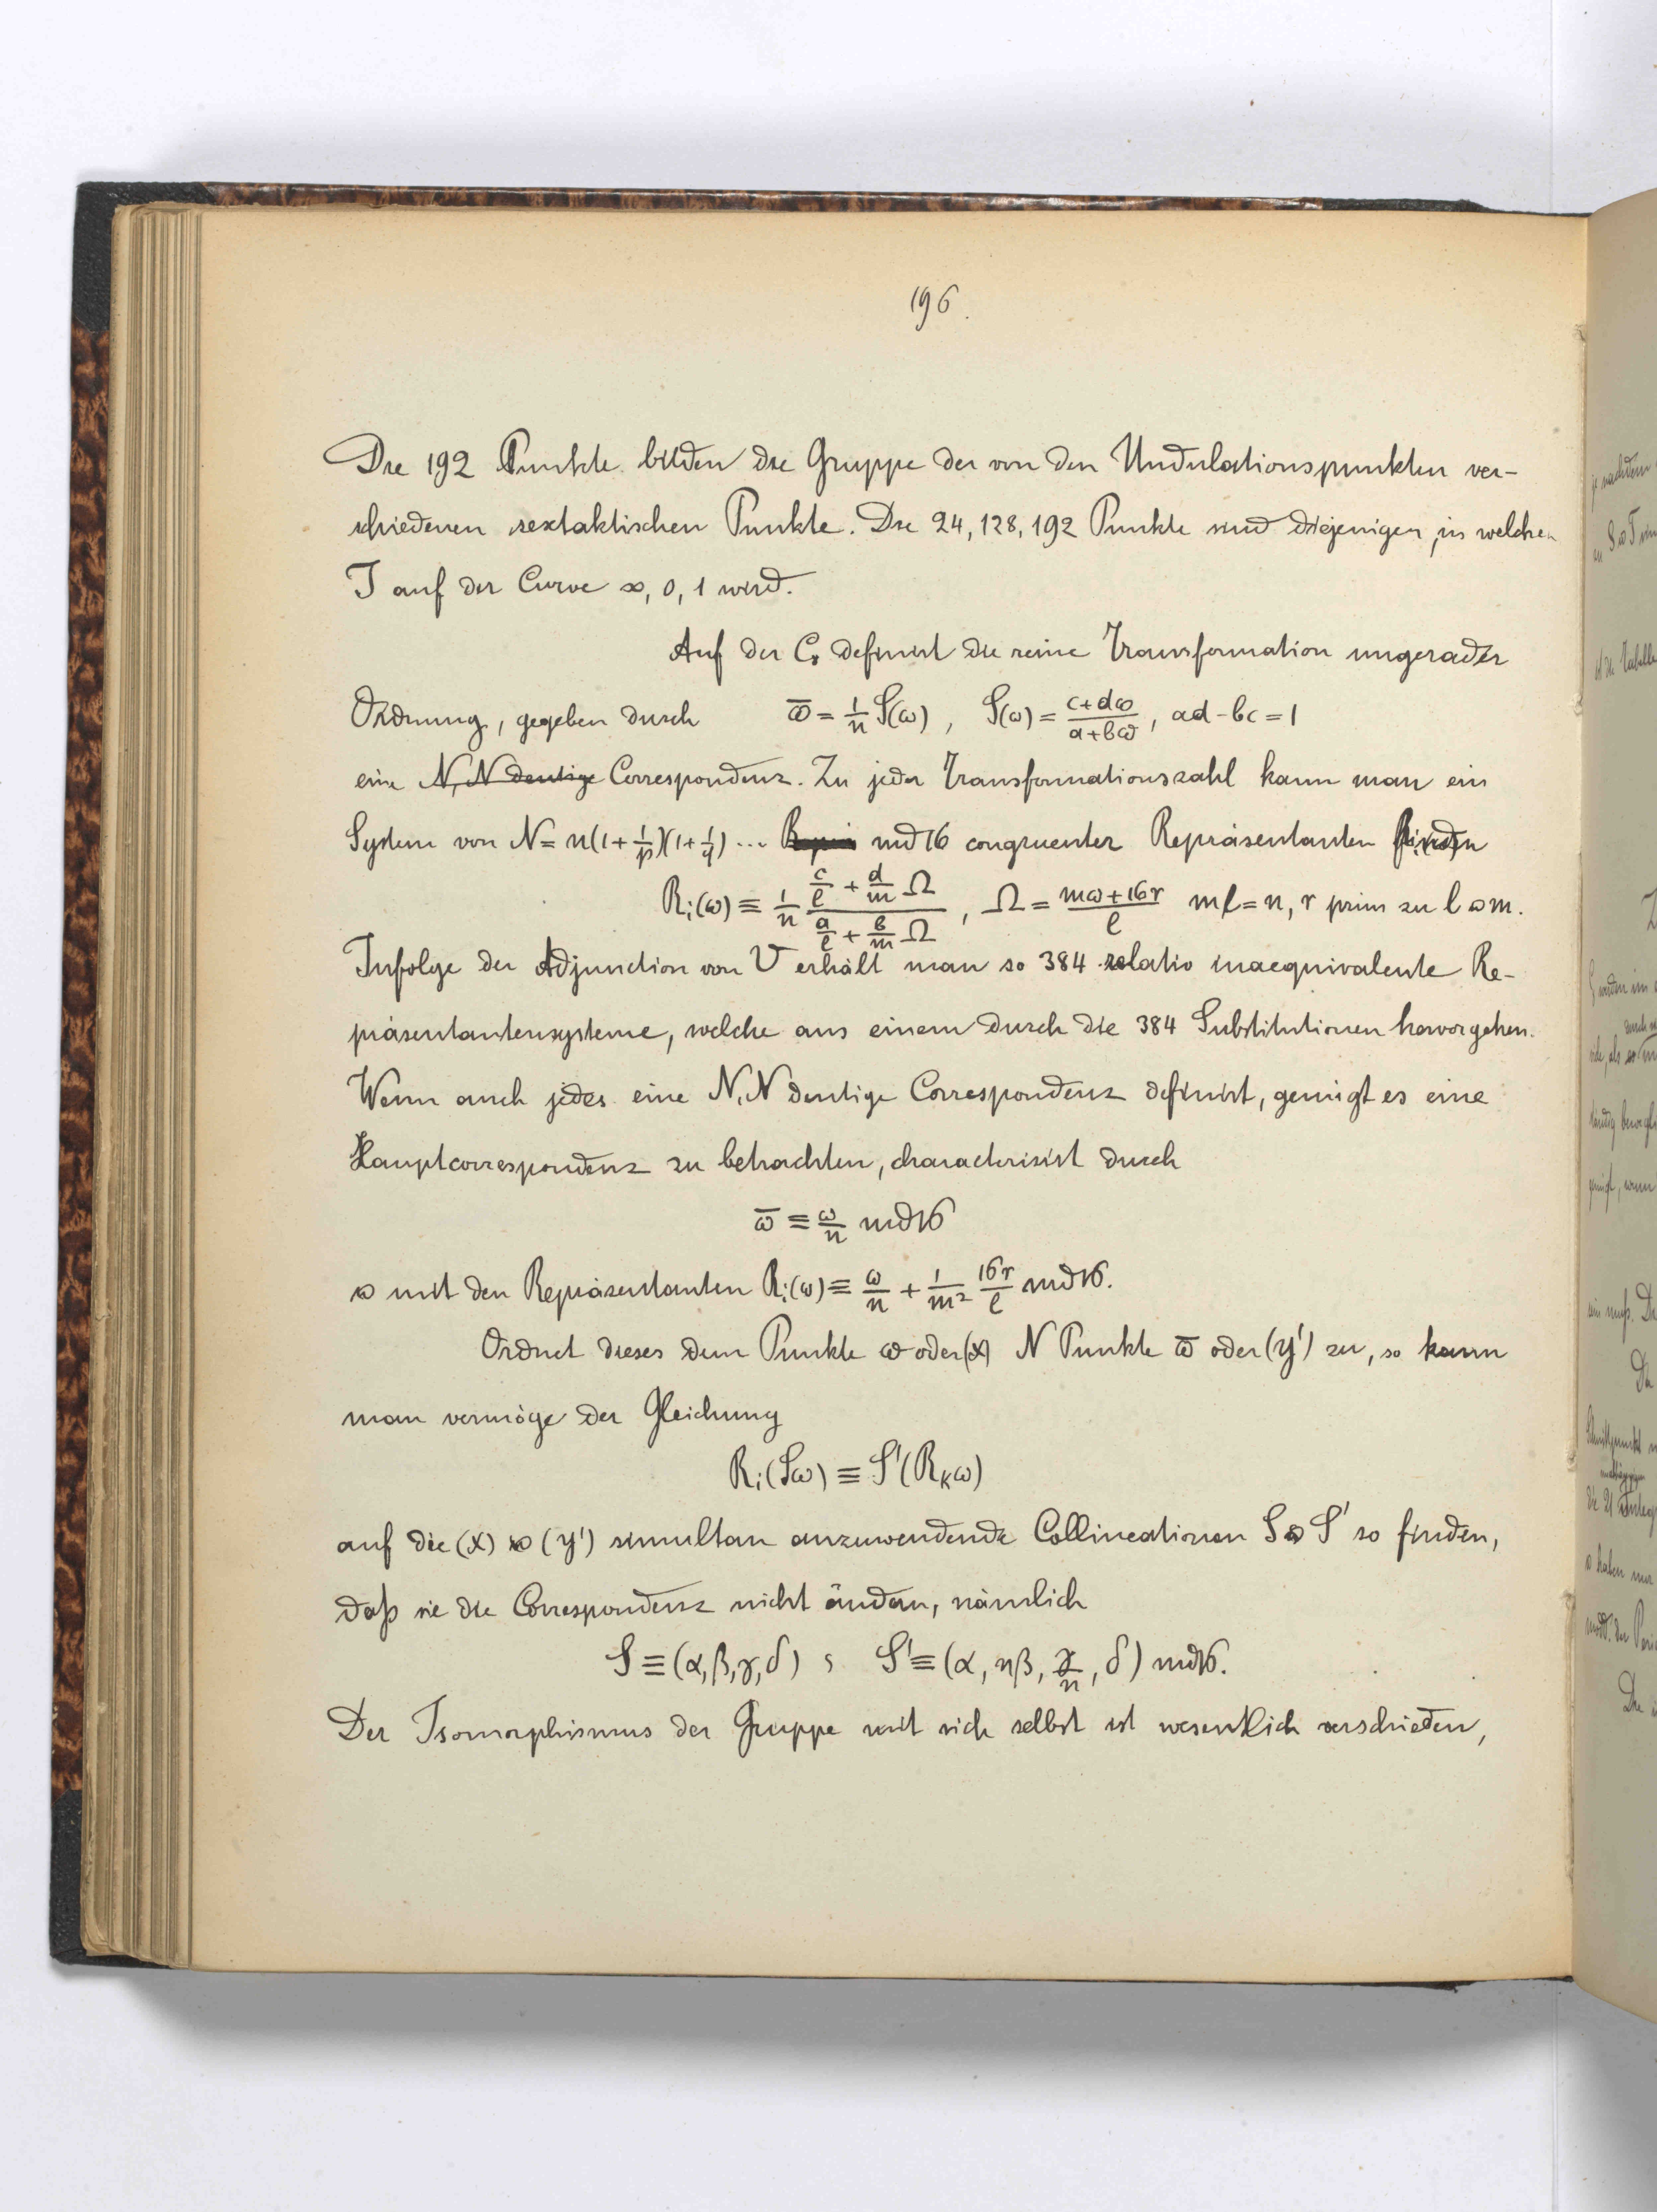 196.
Die 192 Punkte bilden die Gruppe der von den Undulationspunkten ver-
schiedenen sextaktischen Punkte. Die 24, 128, 192 Punkte sind diejenigen, in welchen
J auf der Curve ∞, 0, 1 wird.
Auf der C₈ definirt die reine Transformation ungerader
Ordnung, gegeben durch ω̄ = 1/n S(ω), S(ω) = (c+dω)/(a+bω), ad-bc=1
eine N,N deutige Correspondenz. Zu jeder Transformationszahl kann man ein
System von N = n(1+1/p)(1+1/q)... md 16 congruenter Repräsentanten finden
Rᵢ(ω) ≡ 1/n (c/l + d/m Ω)/(a/l + b/m Ω), Ω = (mω+16r)/l ml=n, r prim zu l & m.
Infolge der Adjunction von V erhält man so 384 relativ inaequivalente Re-
präsentantensysteme, welche aus einem durch die 384 Substitutionen hervorgehen.
Wenn auch jedes eine N,N deutige Correspondenz definirt, genügt es eine
Hauptcorrespondenz zu betrachten, characterisirt durch
ω̄ ≡ ω/n md 16
& mit den Repräsentanten Rᵢ(ω) ≡ ω/n + 1/m² 16r/l md 16.
Ordnet dieses dem Punkte ω oder (x) N Punkte ω̄ oder (y') zu, so kann
man vermöge der Gleichung
Rᵢ(Sω) ≡ S'(Rₖω)
auf die (x) & (y') simultan anzuwendende Collineationen S & S' so finden,
daß sie die Correspondenz nicht ändern, nämlich
S ≡ (α, β, γ, δ) ; S' ≡ (α, nβ, γ/n, δ) md 16.
Der Isomorphismus der Gruppe mit sich selbst ist wesentlich verschieden,